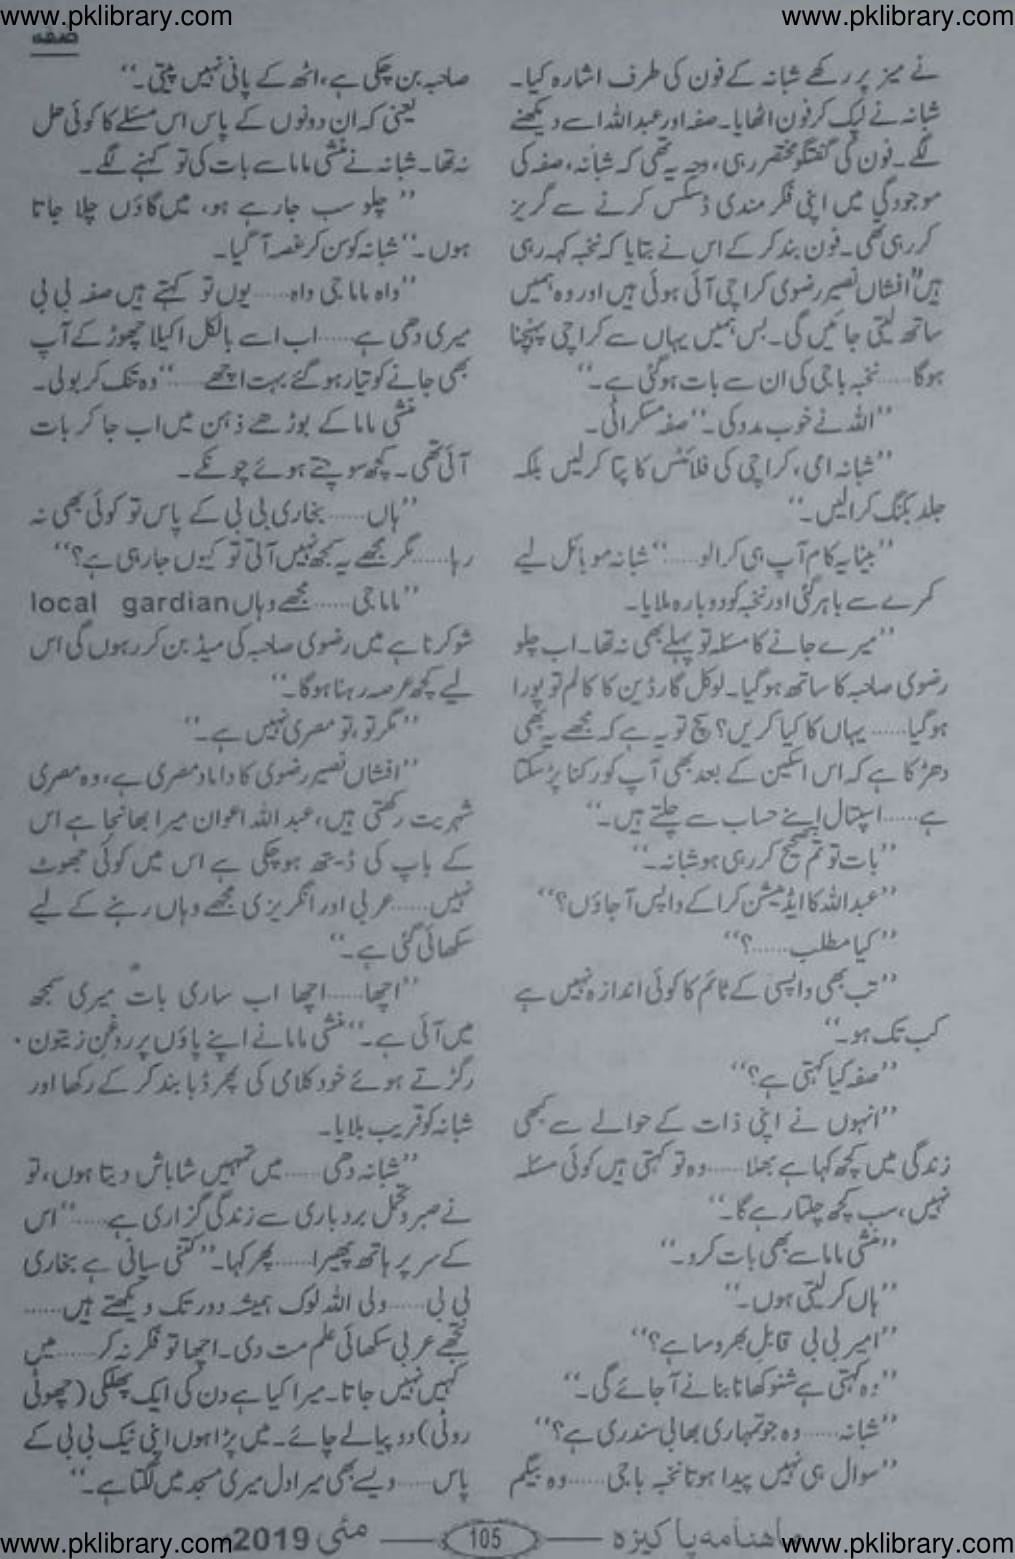 www.pklibrary.com www.pklibrary.com
صفہ
نے میز پر رکھے شبانہ کے فون کی طرف اشارہ کیا۔
شبانہ نے لپک کر فون اٹھایا۔ صفہ اور عبداللہ اسے دیکھنے
لگے۔ فون کی گفتگو مختصر رہی، وجہ یہ تھی کہ شبانہ، صفہ کی
موجودگی میں اپنی فکر مندی ڈسکس کرنے سے گریز
کر رہی تھی۔ فون بند کر کے اس نے بتایا کہ نخبہ کہہ رہی
ہیں ”افشاں نصیر رضوی کراچی آئی ہوئی ہیں اور وہ ہمیں
ساتھ لیتی جائیں گی۔ بس ہمیں یہاں سے کراچی پہنچنا
ہوگا...... نخبہ باجی کی ان سے بات ہوگئی ہے۔“
”اللہ نے خوب مدد کی۔“ صفہ مسکرائی۔
”شبانہ امی، کراچی کی فلائٹس کا پتا کرلیں بلکہ
جلد بکنگ کرالیں۔“
”بیٹا یہ کام آپ ہی کرالو......“ شبانہ موبائل لیے
کمرے سے باہر گئی اور نخبہ کو دوبارہ ملایا۔
”میرے جانے کا مسئلہ تو پہلے بھی نہ تھا۔ اب چلو
رضوی صاحبہ کا ساتھ ہوگیا۔ لوکل گارڈین کا کالم تو پورا
ہوگیا...... یہاں کا کیا کریں؟ سچ تو یہ ہے کہ مجھے یہ بھی
دھڑکا ہے کہ اس اسکین کے بعد بھی آپ کو رکنا پڑ سکتا
ہے...... اسپتال اپنے حساب سے چلتے ہیں۔“
”بات تو تم صحیح کر رہی ہو شبانہ۔“
”عبداللہ کا ایڈمیشن کرا کے واپس آ جاؤں؟“
”کیا مطلب......؟“
”تب بھی واپسی کے ٹائم کا کوئی اندازہ نہیں ہے
کب تک ہو۔“
”صفہ کیا کہتی ہے؟“
”انہوں نے اپنی ذات کے حوالے سے کبھی
زندگی میں کچھ کہا ہے بھلا...... وہ تو کہتی ہیں کوئی مسئلہ
نہیں، سب کچھ چلتا رہے گا۔“
”منشی ماما سے بھی بات کرو۔“
”ہاں کر لیتی ہوں۔“
”امیر بی بی قابلِ بھروسا ہے؟“
”وہ کہتی ہے شنو کھانا بنانے آ جائے گی۔“
”شبانہ...... وہ جو تمہاری بھابی سندری ہے؟“
”سوال ہی نہیں پیدا ہوتا نخبہ باجی...... وہ بیگم
صاحبہ بن چکی ہے، اٹھ کے پانی نہیں پیتی۔“
یعنی کہ ان دونوں کے پاس اس مسئلے کا کوئی حل
نہ تھا۔ شبانہ نے منشی ماما سے بات کی تو کہنے لگے۔
”چلو سب جارہے ہو، میں گاؤں چلا جاتا
ہوں۔“ شبانہ کو سن کر غصہ آ گیا۔
”واہ ماما جی واہ...... یوں تو کہتے ہیں صفہ بی بی
میری دھی ہے...... اب اسے بالکل اکیلا چھوڑ کے آپ
بھی جانے کو تیار ہوگئے بہت اچھے......“ وہ تنک کر بولی۔
منشی ماما کے بوڑھے ذہن میں اب جا کر بات
آئی تھی۔ کچھ سوچتے ہوئے چونکے۔
”ہاں...... بخاری بی بی کے پاس تو کوئی بھی نہ
رہا...... مگر مجھے یہ سمجھ نہیں آتی تو کیوں جارہی ہے؟“
”ماما جی...... مجھے وہاں local gardian
شو کرنا ہے میں رضوی صاحبہ کی میڈ بن کر رہوں گی اس
لیے کچھ عرصہ رہنا ہوگا۔“
”مگر تو، تو مصری نہیں ہے۔“
”افشاں نصیر رضوی کا داماد مصری ہے، وہ مصری
شہریت رکھتی ہیں، عبداللہ اعوان میرا بھانجا ہے اس
کے باپ کی ڈیتھ ہو چکی ہے اس میں کوئی جھوٹ
نہیں...... عربی اور انگریزی مجھے وہاں رہنے کے لیے
سکھائی گئی ہے۔“
”اچھا...... اچھا اب ساری بات میری سمجھ
میں آئی ہے۔“ منشی ماما نے اپنے پاؤں پر روغنِ زیتون
رگڑتے ہوئے خود کلامی کی پھر ڈبا بند کر کے رکھا اور
شبانہ کو قریب بلایا۔
”شبانہ دھی...... میں تمہیں شاباش دیتا ہوں، تو
نے صبر و تحمل بردباری سے زندگی گزاری ہے......“ اس
کے سر پر ہاتھ پھیرا...... پھر کہا۔ ”کتنی سیانی ہے بخاری
بی بی...... ولی اللہ لوک ہمیشہ دور تک دیکھتے ہیں......
تجھے عربی سکھائی علم مت دی۔ اچھا تو فکر نہ کر...... میں
کہیں نہیں جاتا۔ میرا کیا ہے دن کی ایک پھلکی (چھوٹی
روٹی) دو پیالے چائے۔ میں پڑا ہوں اپنی نیک بی بی کے
پاس...... ویسے بھی میرا دل میری مسجد میں لگتا ہے۔“
ماہنامہ پاکیزہ 105 مئی 2019
www.pklibrary.com www.pklibrary.com